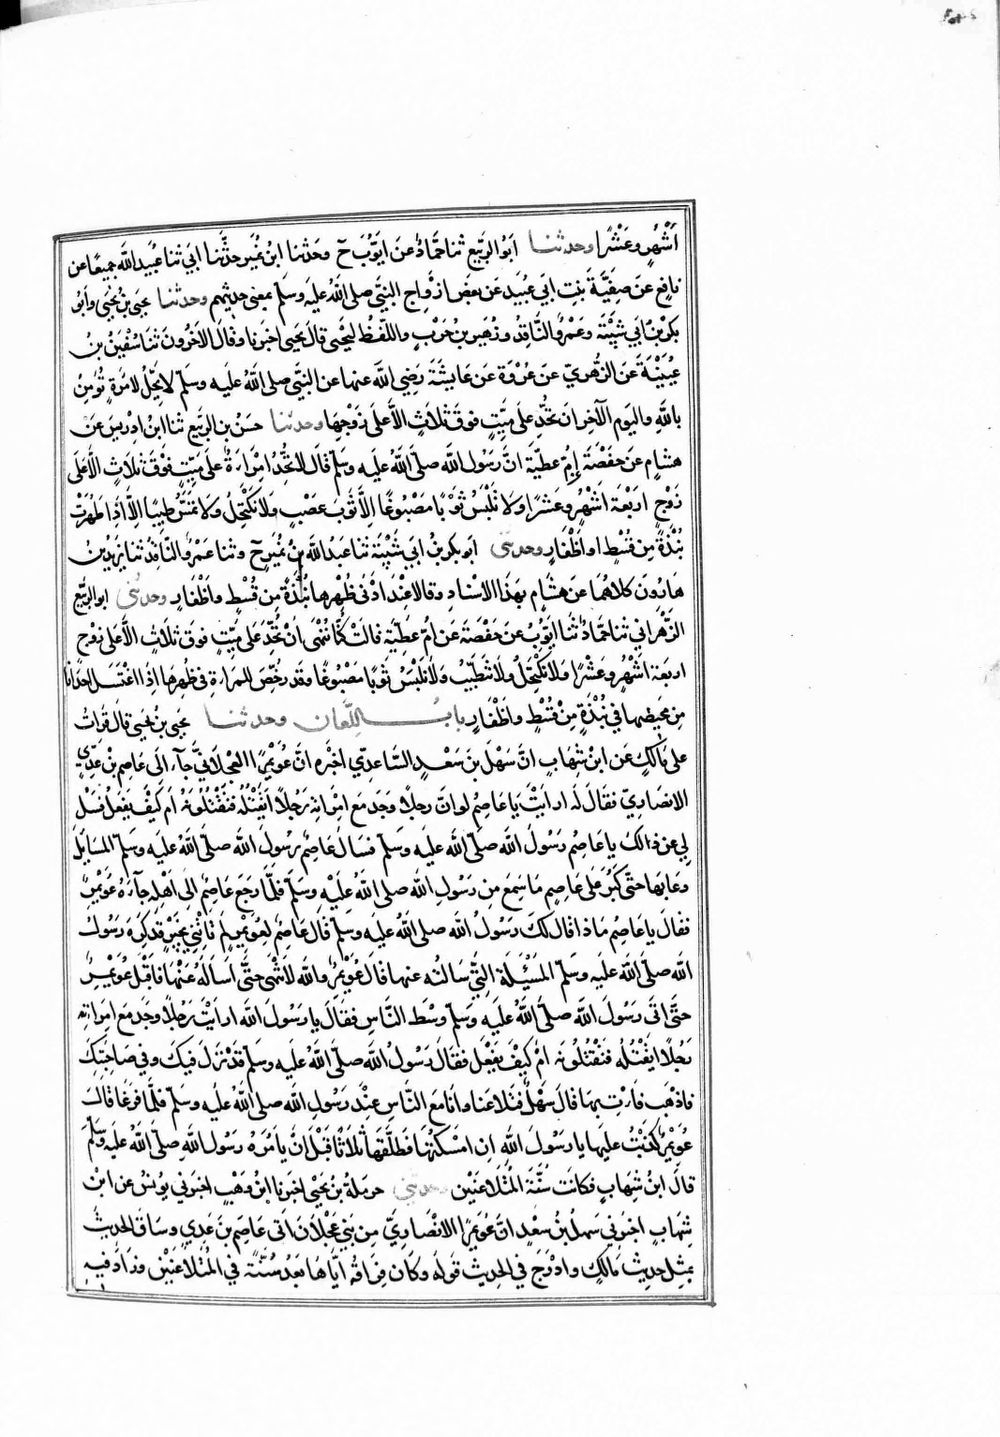 اَشْهُرٍ وعَشْرًا وحدثنا ابوالربيع ثنا حمّادٌ عن ايّوب ح وحَدثنا ابن نُمَيرٍ حدّثنا ابي ثنا عُبيد الله جميعًا عن
نافعٍ عن صَفيّة بنت ابي عُبيد عن بعض ازواج النبيّ صلى الله عليه وسلم بمعنى حديثهم وحدثنا يحيى بن يحيى وابُو
بكر بن ابي شيبة وعَمْرو النّاقد وزُهير بن حَرْبٍ واللّفظ ليحيى قال يحيى اخبرنا وقال الآخرون ثنا سُفين بن
عُيَيْنَة عن الزُّهْريّ عن عُرْوة عن عايشة رضي الله عنها عن النبيّ صلى الله عليه وسلم لا يحلّ لامرةٍ تُؤمِنُ
بالله واليوم الآخر ان تُحدّ على ميّتٍ فوق ثلاثٍ الّا على زَوجِها وحدثنا حسَنُ بن الربيع ثنا ابن ادريس عن
هشام عن حفصة عن امّ عطيّة انّ رسُول الله صلّى الله عليه وسلّم قال لا تُحدّ امراةٌ على ميّتٍ فوق ثلاثٍ الّا على
زَوجٍ اربعة اشهُرٍ وعشرًا ولا تلبَسُ ثوبًا مصبوغًا الّا ثوبَ عصبٍ ولا تكتحل ولا تمسّ طيبًا الّا اذا طهُرت
نُبْذةً من قُسْطٍ او اَظْفارٍ وحدثني ابو بكر بن ابي شيبة ثنا عبد الله بن نُميرٍ ح وثنا عَمْرو النّاقدُ ثنا يزيد بن
هارون كلاهما عن هشامٍ بهذا الاسناد وقالا عند ادنى طُهرها نُبْذةً من قُسْطٍ واَظْفارٍ وحدثني ابوالربيع
الزّهراني ثنا حمّادٌ ثنا ايّوب عن حفصة عن امّ عطيّة قالت كنّا نُنْهى اَنْ نُحِدّ على ميّتٍ فوق ثلاثٍ الّا على زوجٍ
اربعة اشهُرٍ وعشْرًا ولا نكتحلُ ولا نتطيّبُ ولا نلبَسُ ثوبًا مصبُوغًا وقد رُخّص للمراة في طُهرها اذا اغتسلت احدانا
من محيضها في نُبْذةٍ من قُسْطٍ واَظْفارٍ بابُ اللِّعان وحدثنا يحيى بن يحيى قال قرات
على مالكٍ عن ابن شهاب انّ سهل بن سعدٍ السّاعديّ اخبره انّ عُوَيمرًا العجلانيّ جآء الى عاصم بن عَديٍّ
الانصاريّ فقال له ارايتَ يا عاصِم لو انّ رجلًا وجد مع امراته رجُلًا ايقتُلُه فتقتُلونَه ام كيف يفعل فسَلْ
لي عن ذالك يا عاصِم رسُول الله صلّى الله عليه وسلّم فسال عاصمٌ رسُول الله صلّى الله عليه وسلّم المسايل
وعابها حتى كبُرَ على عاصمٍ ما سمع من رسُول الله صلى الله عليه وسلّم فلمّا رجع عاصمٌ الى اهله جآءه عُويمرٌ
فقال يا عاصِم ماذا قال لك رسُول الله صلى الله عليه وسلّم قال عاصمٌ لعُويمرٍ لم تاتني بخيرٍ قد كره رسُول
الله صلّى الله عليه وسلّم المسئلة التي سالته عنها قال عُويمرٌ والله لا انتهي حتّى اَسالَه عنها فاقبل عُويمرٌ
حتّى اتى رسُول الله صلّى الله عليه وسلّم وسَط النّاس فقال يا رسُول الله ارايت رجُلًا وجد مع امراته
رجُلًا ايقتُلُه فتقتلونه امْ كيف يفعل فقال رسُول الله صلّى الله عليه وسلّم قد نزل فيك وفي صاحبتك
فاذهب فات بها قال سهلٌ فتلاعنا وانا مع النّاس عند رسُول الله صلى الله عليه وسلم فلمّا فرغا قال
عُويمرٌ كذبتُ عليها يا رسُول الله ان امسكتُها فطلّقها ثلاثًا قبل اَنْ يامُره رسُول الله صلى الله عليه وسلّم
قال ابن شهابٍ فكانت سُنّة المُتلاعنين وحدثني حرملة بن يحيى اخبرنا ابن وهبٍ اخبرني يونُس عن ابن
شهابٍ اخبرني سهل بن سعْدٍ انّ عُويمرًا الانصاريّ من بني عَجْلان اتى عاصم بن عَديٍّ وساق الحديث
بمثل حديث مالكٍ وادرج في الحديث قوله وكان فراقُه ايّاها بعدُ سُنّةً في المُتلاعنين وزاد فيه